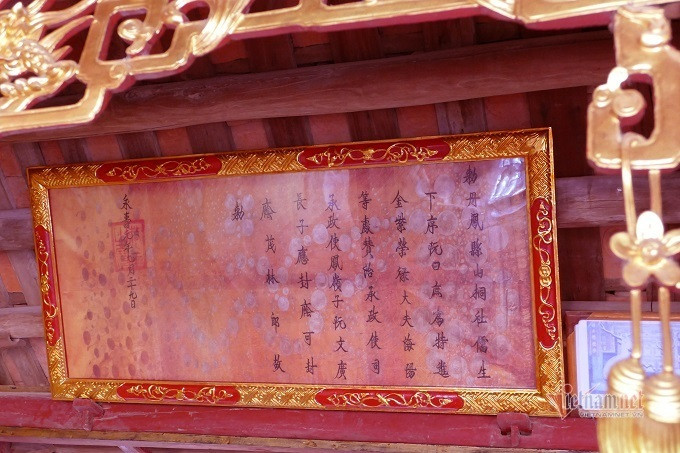 勅丹鳳縣山桐社儒生
下序阮曰為特進
金紫榮祿大夫海陽
等處贊治承政使司
承政使鳳儀子阮文廣
長子應封廕可封
廕茂林郎欽
勅
永壽元年 月二十九日
vietnamnet
VIETNAMNET.VN